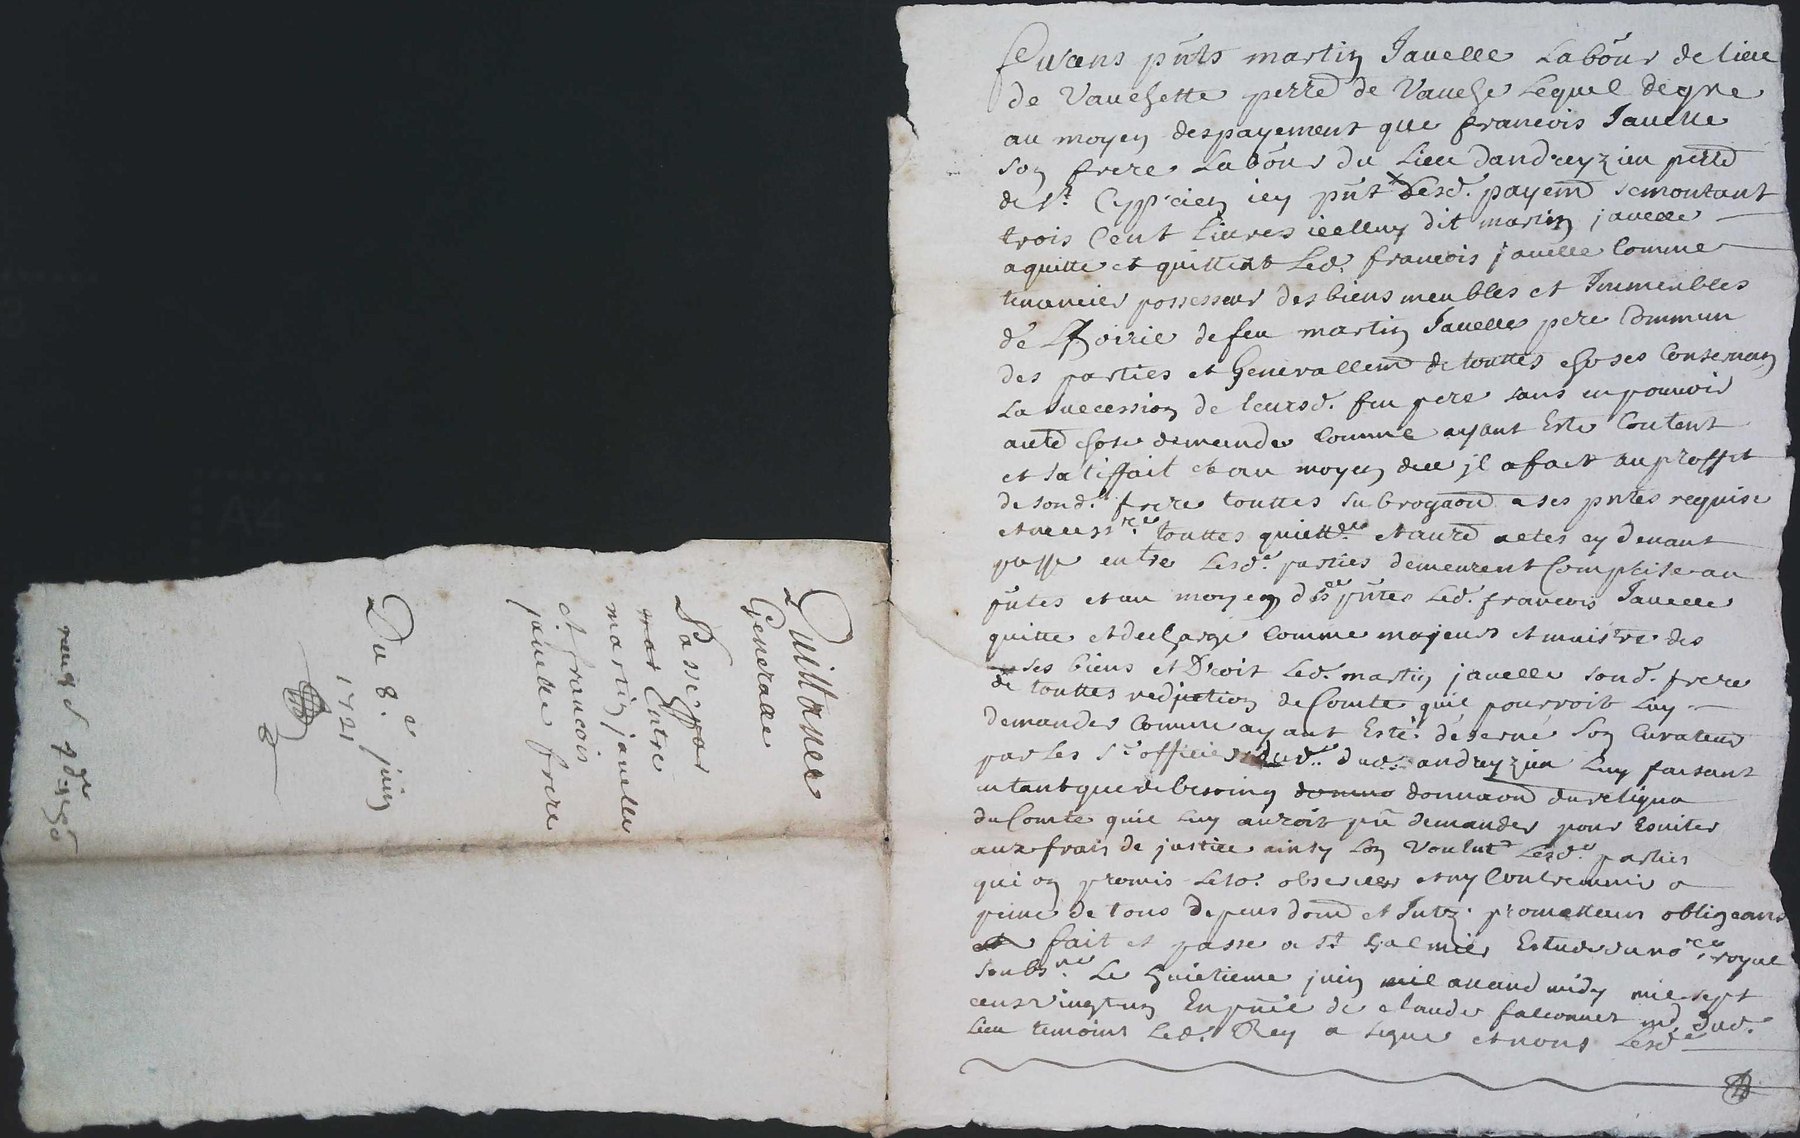 Quittance
Generalle
Passé par
Entre
martin javelle
et francois
javelle frere
Du 8.e juin
1721
furens pnts martin Javelle Labour de lieu
de Vauchette perre de Vauche Lequel de gre
au moyen despayement que francois Javelle
son frere Labour du Lieu dandreyzieu perre
de St. Cyprien icy pnt desd. payem semontant
trois Cent Livres icelluy dit martin javelle
aquitte et quittent Led. francois javelle Comme
tenancier possesseur des biens meubles et Immeubles
de Lhoirie de feu martin Javelle pere Commun
des parties et Generallem de touttes choses Consernan
La succession de leursd. feu pere sans en pouvoir
autre chose demander Comme ayant Esté Content
et satiffait et au moyen dece jl a fait au proffit
de sond. frere touttes subrogaon a ses pntes requise
et necess.re touttes quitt.ce et autre actes cy devant
passe entre Lesd. parties demeurent Comprise au
pntes et au moyen des pntes Led. francois Javelle
quitte et decharge Comme majeur et maistre des
ses biens et Droit Led. martin javelle sond. frere
de touttes reddition de Comte quil pourroit Luy
demander Comme ayant Esté deserné son Curateur
par Les Srs officiers dud. andreyzieu Luy faisant
entant que de besoing donnaon du reliqua
du Comte quil Luy auroit pu demander pour Eviter
aux frais de justice ainsy Lon Voulut Lesd. parties
qui on promis Leto. observer et ny Contrevenir a
peine de tous depens dom et Intz. prometteur obligeans
fait et passe a St Galmier Estude du no.re royal
soubs.ne Le huictieme juin avand midy mil sept
cens vingtun En pnce de claude falconnet md dud.
Lieu temoins Led. Rey a signe et nons Lesd